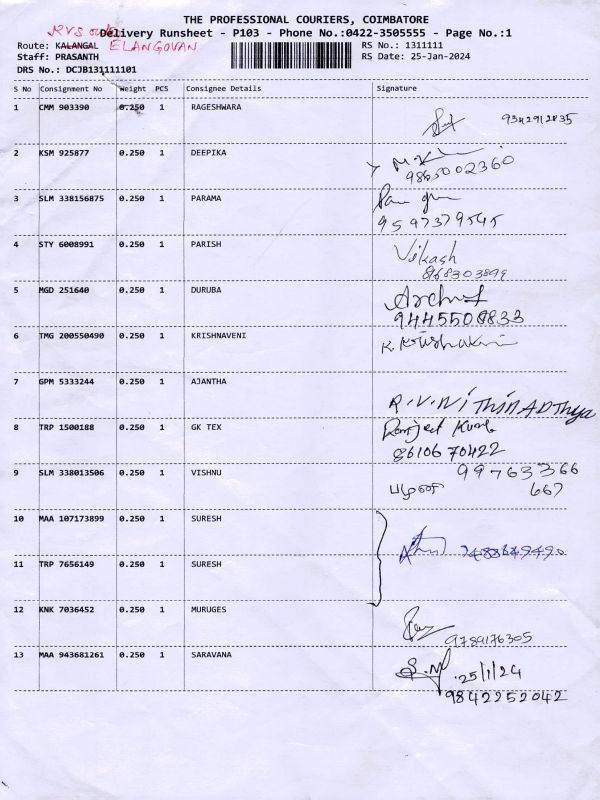 THE PROFESSIONAL COURIERS, COIMBATORE
Delivery Runsheet - P103 - Phone No.:0422-3505555 - Page No.:1
Route: KALANGAL ELANGOVAN RS No.: 1311111
Staff: PRASANTH RS Date: 25-Jan-2024
DRS No.: DCJB131111101
S No Consignment No Weight PCS Consignee Details Signature
1 CMM 903390 0.250 1 RAGESHWARA
9342912835
2 KSM 925877 0.250 1 DEEPIKA
9865002360
3 SLM 338156875 0.250 1 PARAMA
9597379545
4 STY 6008991 0.250 1 PARISH
Vikash
5 MGD 251640 0.250 1 DURUBA
9445500833
6 TMG 200550490 0.250 1 KRISHNAVENI
7 GPM 5333244 0.250 1 AJANTHA
R.V.Nithin ADThya
8 TRP 1500188 0.250 1 GK TEX
8610670422
9 SLM 338013506 0.250 1 VISHNU
99763366
667
10 MAA 107173899 0.250 1 SURESH
11 TRP 7656149 0.250 1 SURESH
12 KNK 7036452 0.250 1 MURUGES
9789176305
13 MAA 943681261 0.250 1 SARAVANA
25/1/24
9842252042